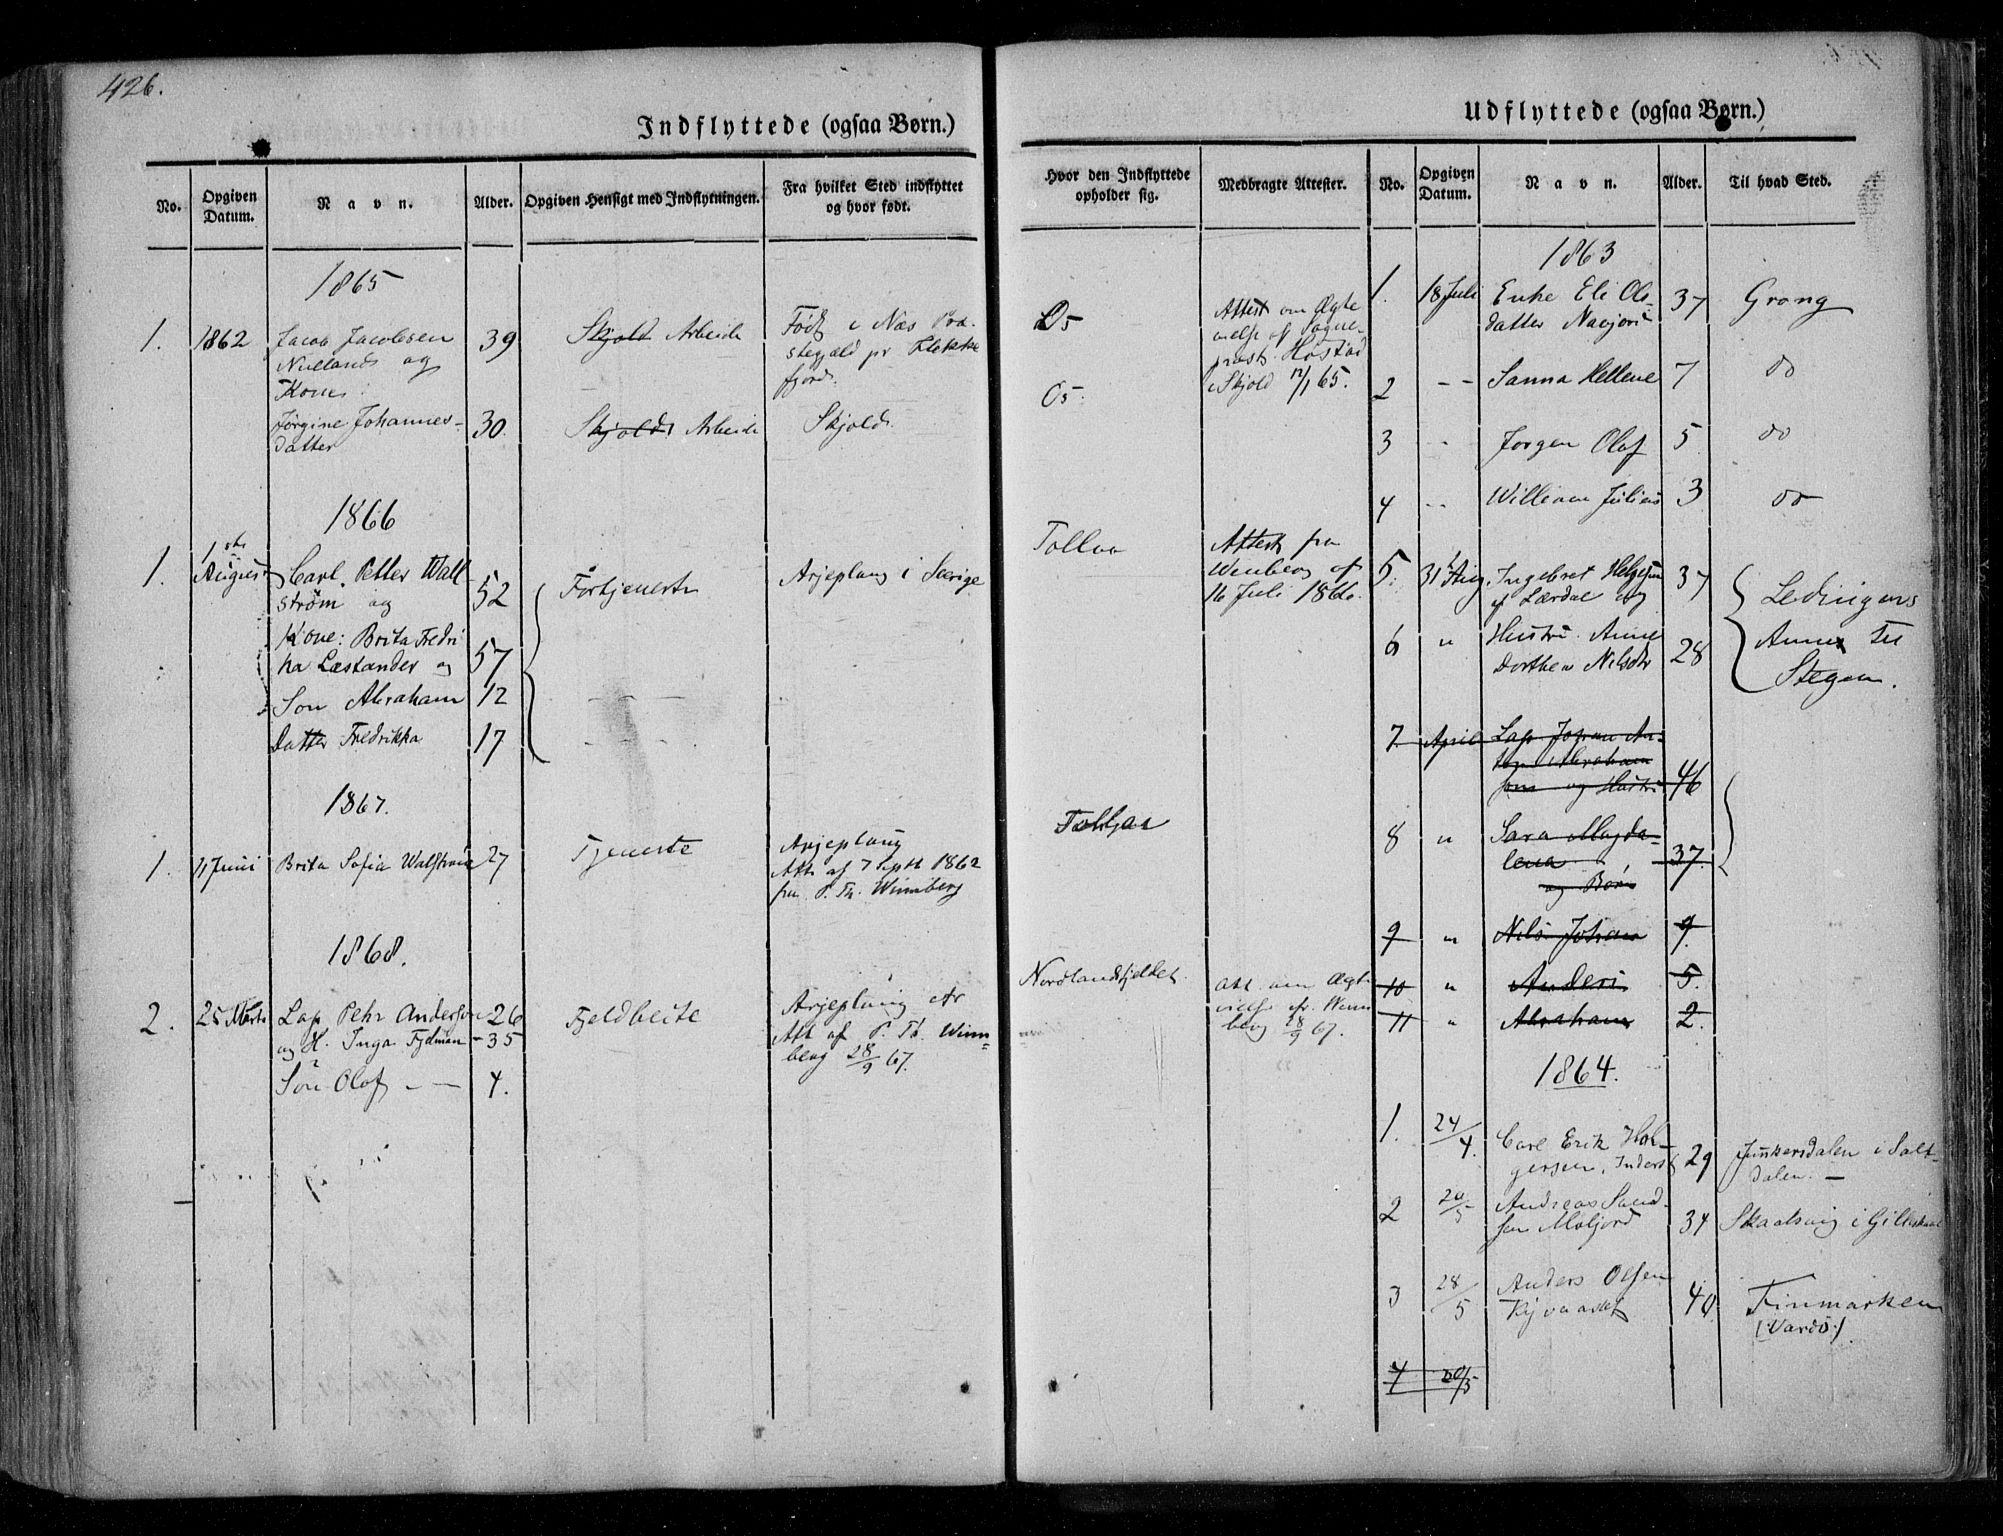 426.
Indflyttede (ogsaa Børn.)
No.
Opgiven
Datum.
Navn.
Alder.
Opgiven Hensigt med Indflytningen.
Fra hvilket Sted indflyttet
og hvor født.
1865
1. 1862 Jacob Jacobsen 39 Skjold Arbeide Født i Næs Præ-
og stegjæld pr Flekke
Kone fjord.
Jørgine Johannes- 30. Skjold Arbeide Skjold.
datter
1866
1. 1ste
August Carl Petter Wall- 52 Fortjeneste Arjeploug i Sverige
strøm og
Kone: Brita Fredri
ka Læstander og 57
Søn Abraham 12 — — —
Datter Fredrikka 17 — — —
1867.
1. 11 Juni Brita Sofia Walstrøm 27 Tjeneste Arjeploug
Att. af 7 Septb 1862
fra P. Th. Winnberg
1868.
2. 25 Marts Lap Pehr Anderson 26 Fjeldbeite Arjeploug
og H. Inga Fjelman - 35 Att af P. Th. Winn=
berg 28/9 67.
Søn Olof — — 4.
Udflyttede (ogsaa Børn.)
Hvor den Indflyttede
opholder sig.
Medbragte Attester.
No.
Opgiven
Datum.
Navn.
Alder.
Til hvad Sted.
Os
Attest om Ægte
vielse af Sogne-
prest Høstad
i Skjold 12/1 65.
Os.
Tollaa
Attest fra
Wenberg af
16 Juli 1866.
Nordlandsfjeldet.
att. om Ægt
vielse fr. Winn
berg 28/9 67.
1863
1. 18 Juli Enke Eli Ols- 37 Grong
datter
2 - - Sanna Hellene 7 do
3 - - Jørgen Olof 5 do
4 - - William Julius 3 do
5. 31 Aug Ingebret Helgesen 37 Ledingens
af Lærdal og
6 " Hustru Anne Annex til
Dorthea Nilsdtr 28 Stegen.
7 April Lap Johan An-
ton Abraham
sen og Hustru 46
8 " Sara Magda-
lena 37.
og Børn
9 " Nils Johan 9.
10 " Anders 5.
11 " Abraham 2.
1864.
1. 24/4. Carl Erik Hol-
gersen, Inderst 29 Junkersdalen i Salt-
dalen. —
2 20/5 Andreas
sen Moljord 34 i Gilleskaal
3 28/5 Anders Olsen
40 Finmarken
(Vardø)
4 20/5